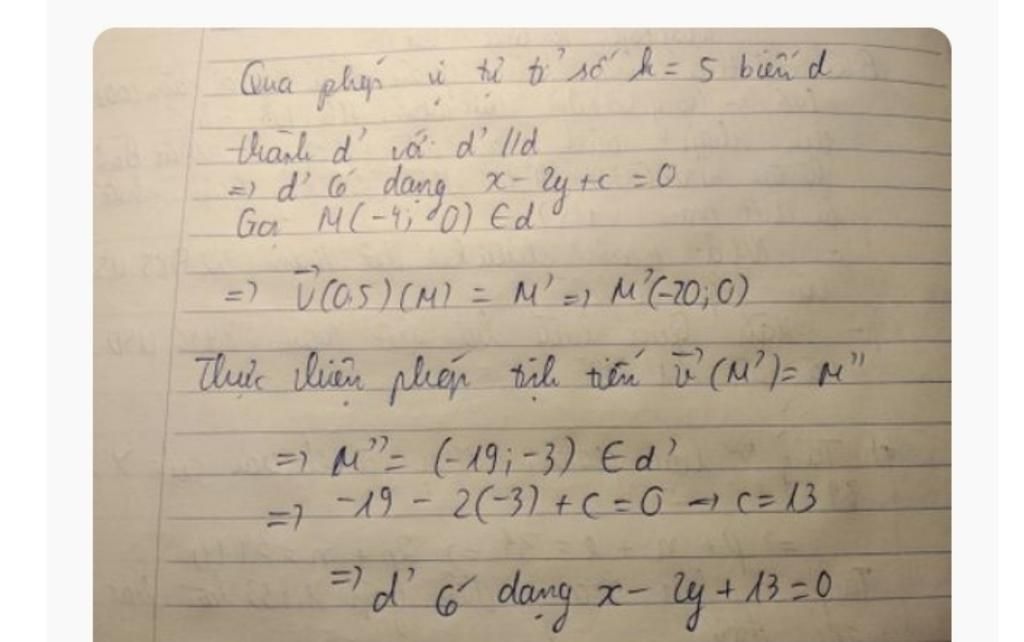 Qua phép vị tự tỉ số k = 5 biến d
thành d' và d' // d
=> d' có dạng x - 2y + c = 0
Gọi M(-4; 0) ∈ d
=> V(0,5)(M) = M' => M'(-20; 0)
Thực hiện phép tịnh tiến v⃗(M') = M''
=> M'' = (-19; -3) ∈ d'
=> -19 - 2(-3) + c = 0 => c = 13
=> d' có dạng x - 2y + 13 = 0